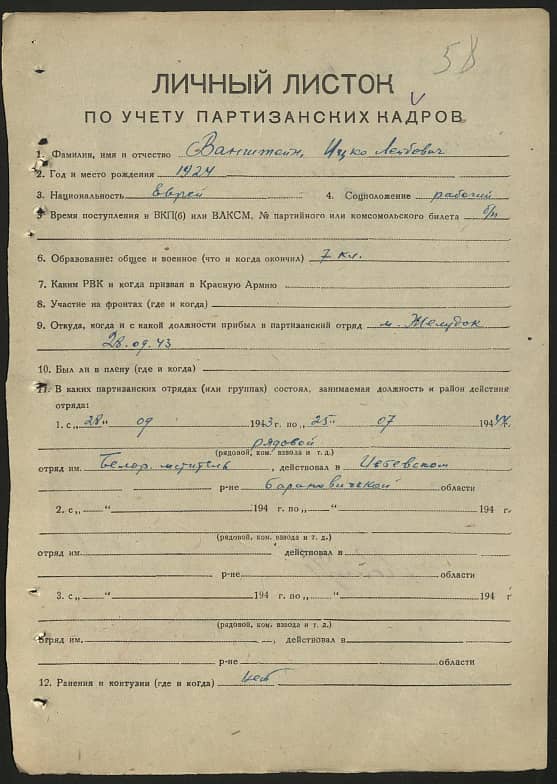 58
ЛИЧНЫЙ ЛИСТОК
ПО УЧЕТУ ПАРТИЗАНСКИХ КАДРОВ
1. Фамилия, имя и отчество Ванштейн, Ицко Лейбович
2. Год и место рождения 1924
3. Национальность еврей 4. Соцположение рабочий
5. Время поступления в ВКП(б) или ВЛКСМ, № партийного или комсомольского билета б/п
6. Образование: общее и военное (что и когда окончил) 7 кл.
7. Каким РВК и когда призван в Красную Армию
8. Участие на фронтах (где и когда)
9. Откуда, когда и с какой должности прибыл в партизанский отряд м. Желудок
28.09.43
10. Был ли в плену (где и когда)
11. В каких партизанских отрядах (или группах) состоял, занимаемая должность и район действия
отряда:
1. с „28“ 09 1943 г. по „25“ 07 1944 г.
рядовой
(рядовой, ком. взвода и т. д.)
отряд им. Белор. мститель, действовал в
р-не Барановичской области
2. с „ “ 194 г. по „ “ 194 г.
(рядовой, ком. взвода и т. д.)
отряд им. действовал в
р-не области
3. с „ “ 194 г. по „ “ 194 г
(рядовой, ком. взвода и т. д.)
отряд им. , действовал в
р-не области
12. Ранения и контузии (где и когда) нет